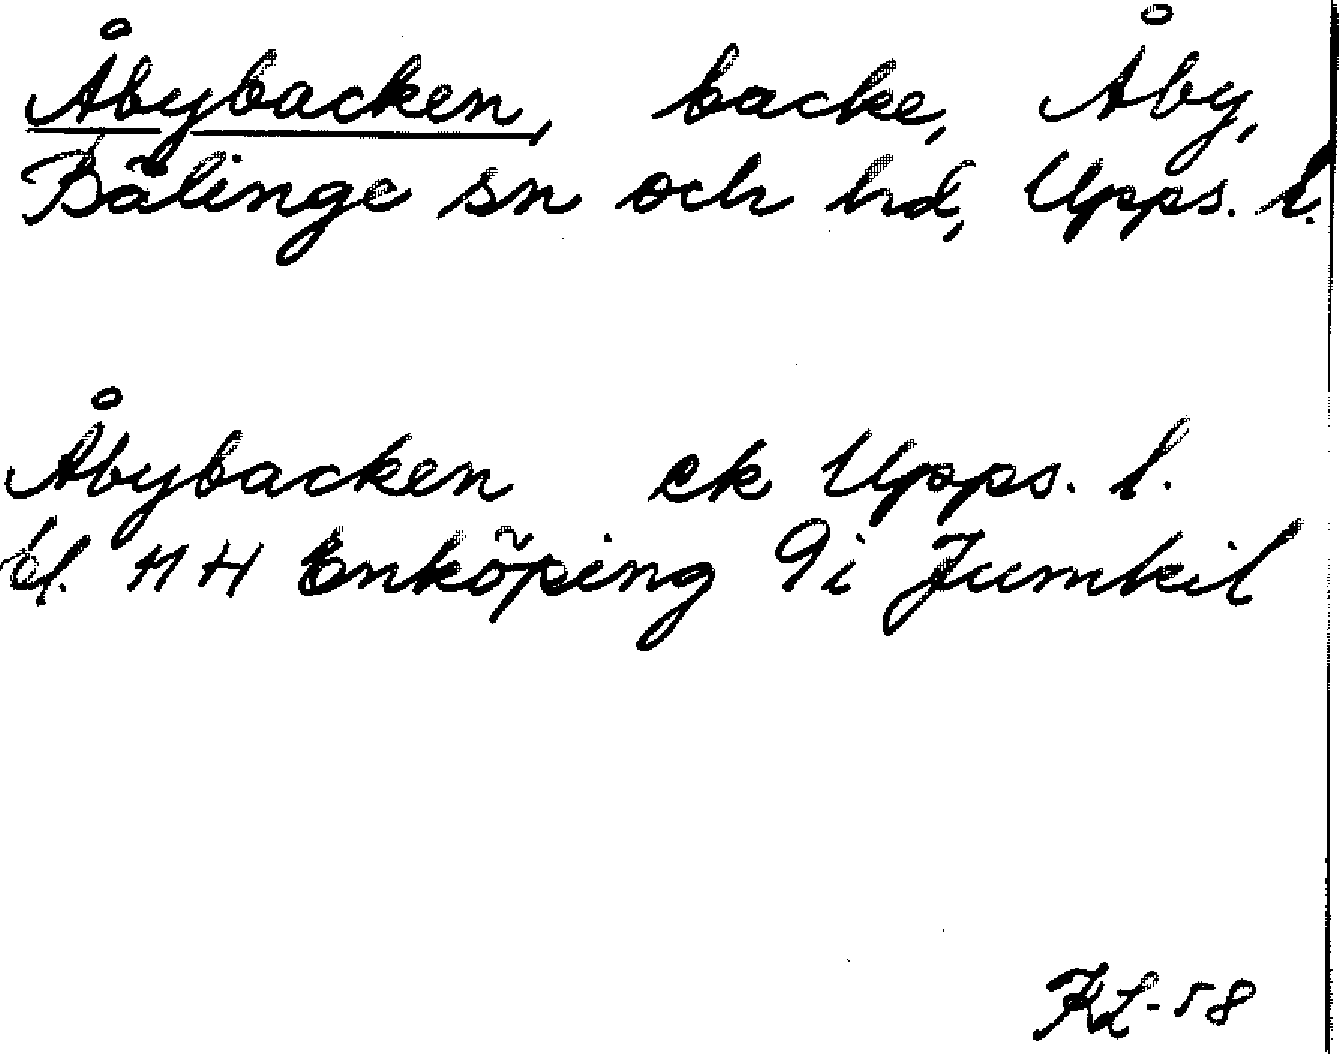 Åbybacken, backe, Åby,
Bälinge sn och hd, Upps. l.
Åbybacken ek Upps. l.
bl. 114 Enköping 9i Jumkil
KL-58